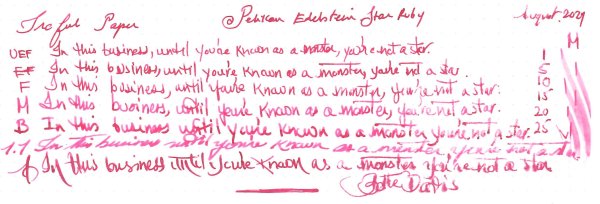 Troful Paper Pelikan Edelstein Star Ruby August 2021
M
UEF In this business, until you're known as a monster, you're not a star. 1
EF In this business, until you're known as a monster, you're not a star. 5
F In this business, until you're known as a monster, you're not a star. 10
M In this business, until you're known as a monster, you're not a star. 15
B In this business until you're known as a monster you're not a star. 20
1.1 In this business until you're known as a monster, you're not a star 25
In this business until you're known as a monster you're not a star
Bette Davis